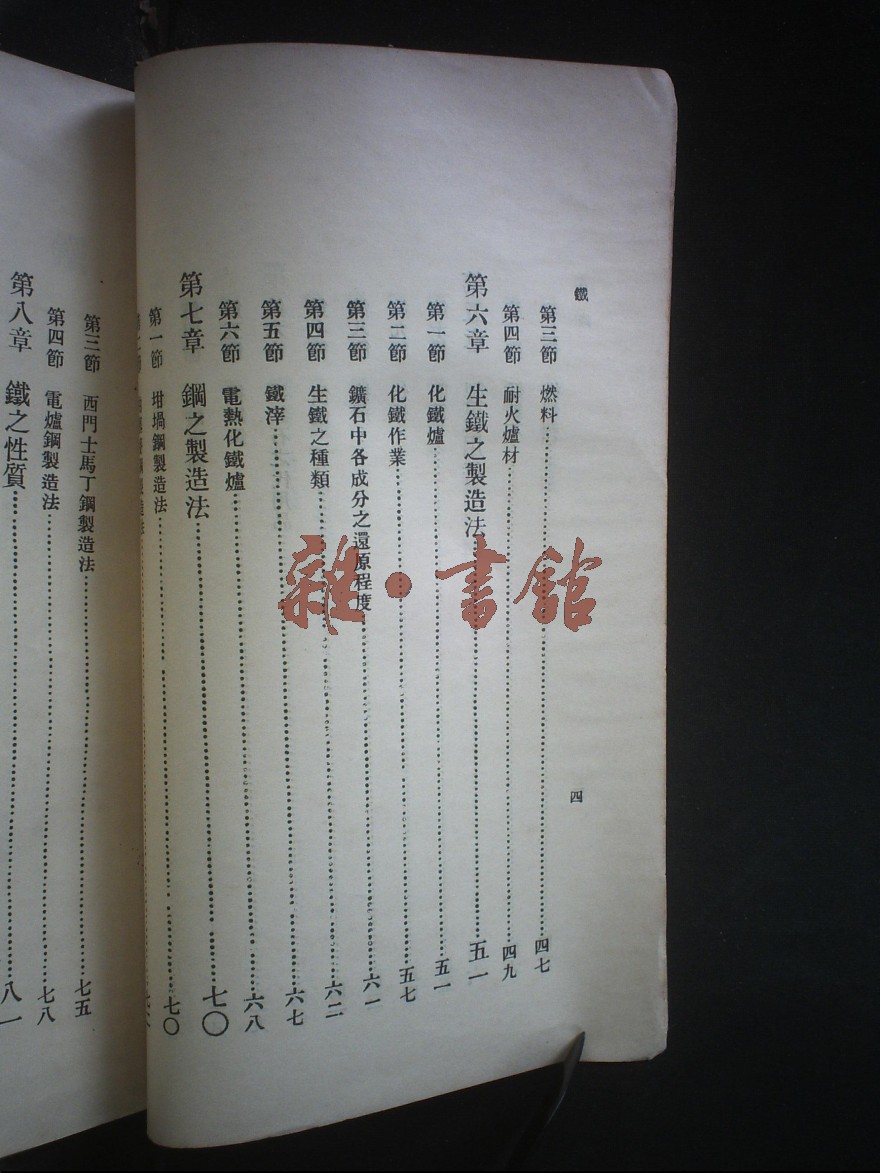 鐵
四
第三節 燃料……四七
第四節 耐火爐材……四九
第六章 生鐵之製造法……五一
第一節 化鐵爐……五一
第二節 化鐵作業……五七
第三節 鑛石中各成分之還原程度……六一
第四節 生鐵之種類……六二
第五節 鐵滓……六七
第六節 電熱化鐵爐……六八
第七章 鋼之製造法……七〇
第一節 坩堝鋼製造法……七〇
第三節 西門士馬丁鋼製造法……七五
第四節 電爐鋼製造法……七八
第八章 鐵之性質……八一
雜·書館